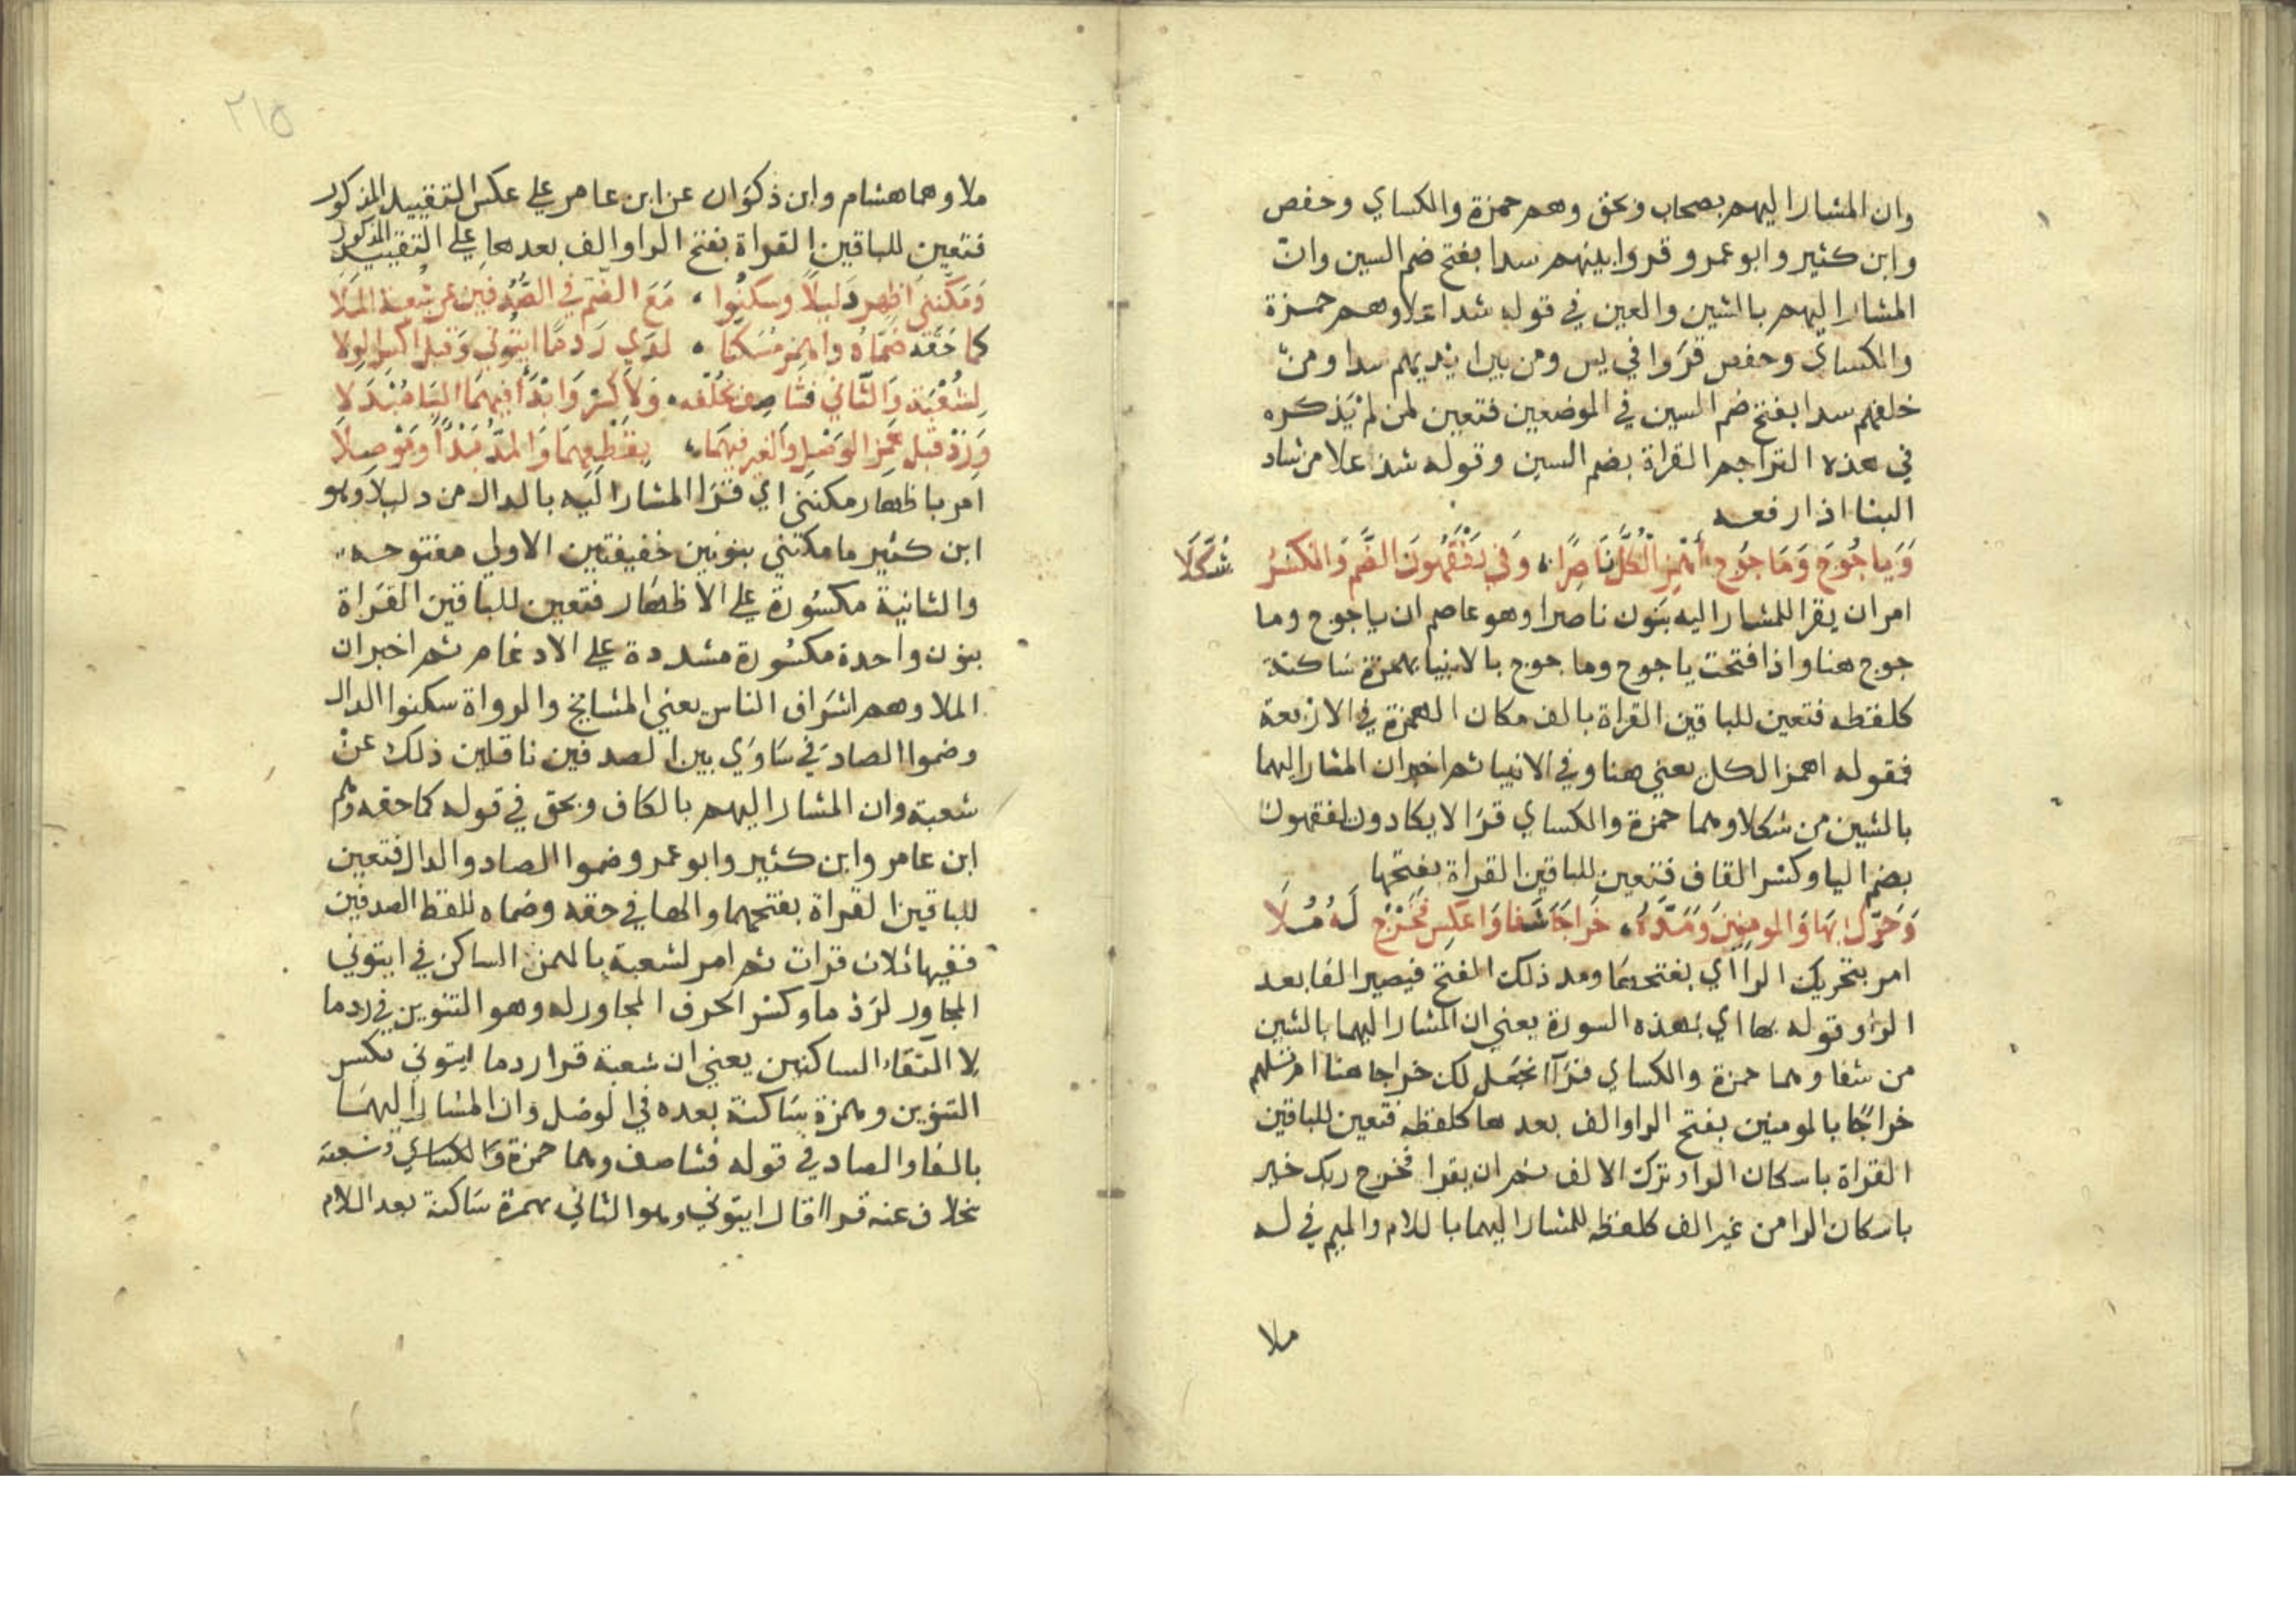 وان المشار اليهم بصحاب وبحق وهم حمزة والكساي وحفص
وابن كثير وابو عمرو قروا بينهم سدا بفتح ضم السين وان
المشار اليهم بالشين والعين في قوله شدا علا وهم حمزة
والكساى وحفص قروا في يس ومن بين ايديهم سدا ومن
خلفهم سدا بفتح ضم السين في الموضعين فتعين لمن لم يذكره
في هذه التراجم القراة بضم السين وقوله شد علا من شاد
البنا اذا رفعه
وَيَاجُوجَ وَمَاجُوج أهمِزِ الْكُلَّ نَاصِرًا وَفي يَفْقَهُونَ الضَّم وَالكَسْرُ شُكِّلَا
امر ان يقرا للمشار اليه بنون ناصرا وهو عاصم ان ياجوج وما
جوج هنا واذا فتحت ياجوج وماجوج بالانبيا بهمزة ساكنة
كلفظه فتعين للباقين القراة بالف مكان الهمزة في الاربعة
فقوله اهمز الكل يعني هنا وفي الانبيا ثم اخبر ان المشار اليهما
بالشين من شكلا وهما حمزة والكساي قرا لا يكادون يفقهون
بضم اليا وكسر القاف فتعين للباقين القراة بفتحها
وَحَرِّك بِهَا وَالمومِنينَ وَمُدَّهُ خَرَاجًا شَفا وَاعكِس فخَرْج لَهُ مُلَا
امر بتحريك الرا اي بفتحها ومد ذلك الفتح فيصير الفا بعد
الرا وقوله بها اي بهذه السورة يعني ان المشار اليهما بالشين
من شفا وهما حمزة والكساي قرآ نجعل لك خراجا هنا ام تسلهم
خراجًا بالمومنين بفتح الرا والف بعدها كلفظه فتعين للباقين
القراة باسكان الرا وترك الالف ثم ان يقرا فخرج ربك خير
باسكان الرا من غير الف كلفظه للمشار اليهما باللام والميم في له
ملا
٢١٥
ملا وهما هشام وابن ذكوان عن ابن عامر على عكس التقييد المذكور
فتعين للباقين القراة بفتح الرا والف بعدها على التقييد المذكور
وَمَكَّنَنِي اظهِر دَليلًا وسكنُوا مَعَ الضَّم في الصُّدفين عن شعبة المَلا
كما حَقّه ضَمَّاهُ واهمز مُسَكنًا لدَي رَدمًا ايتوني وَقبل اكسر الوِلا
لِشُعْبَة وَالثَّاني فشَا صِف بخُلْفه وَلَا كسْرَ وَابْدَأ فيهمَا اليَا مُبْدَلا
وَزِدْ قبل همز الوَصْلِ وَالغير فيهمَا بِقَطْعِهمَا وَالمَدّ بَدْأً وَمَوْصِلا
امر باظهار مكنني اي قرا المشار اليه بالدال من دليلا وهو
ابن كثير ما مكنني بنونين خفيفتين الاولي مفتوحه
والثانية مكسورة على الاظهار فتعين للباقين القراة
بنون واحدة مكسورة مشددة علي الادغام ثم اخبر ان
الملا وهم اشراف الناس يعني المشايخ والرواة سكنوا الدال
وضموا الصاد في ساوى بين الصدفين ناقلين ذلك عن
شعبة وان المشار اليهم بالكاف وبحق في قوله كما حقه وهم
ابن عامر وابن كثير وابو عمرو ضموا الصاد والدال فتعين
للباقين القراة بفتحهما والها في حقه وضماه للفظ الصدفين
ففيها ثلاث قرات ثم امر لشعبة بالهمز الساكن في ايتوني
المجاور لردما وكسر الحرف المجاور له وهو التنوين في ردما
لالتقاء الساكنين يعني ان شعبة قرا ردما ايتوني بكسر
التنوين وهمزة ساكنة بعده في الوصل وان المشار اليهما
بالفا والصاد في قوله فشا صف وهما حمزة والكساي وشعبة
بخلاف عنه قرا قال ايتوني وهو الثاني بهمزة ساكنة بعد اللام